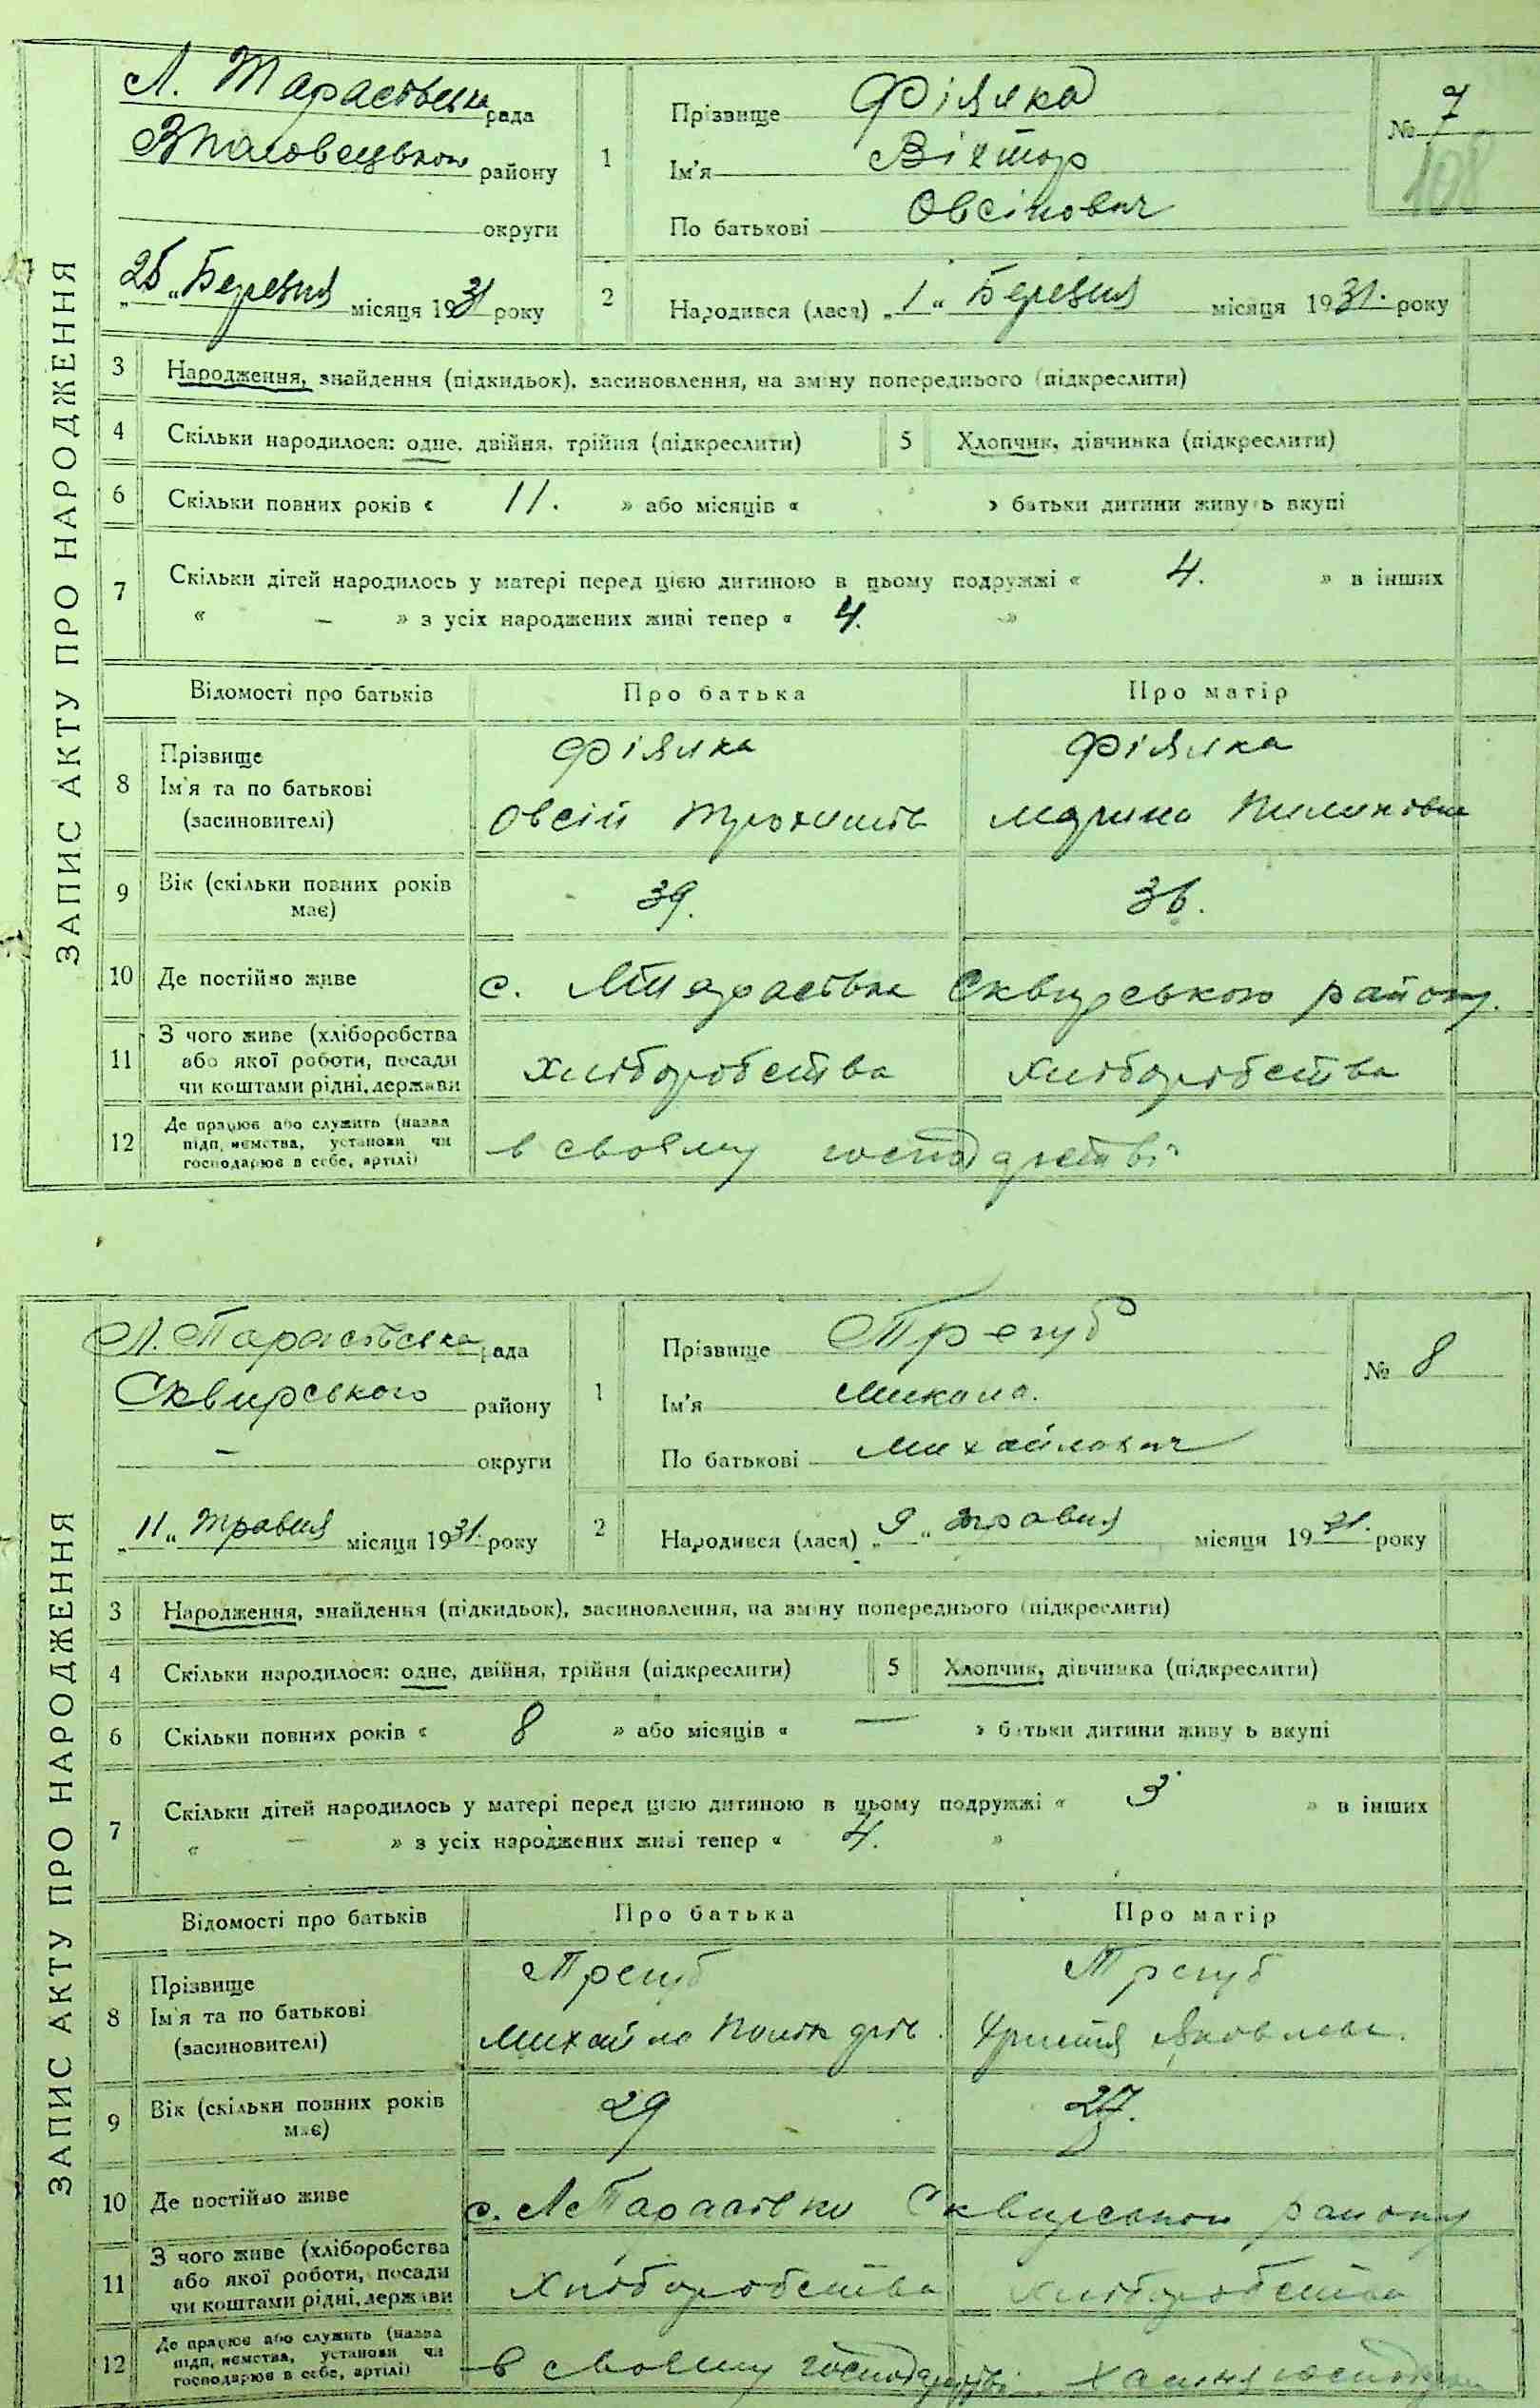 ЗАПИС АКТУ ПРО НАРОДЖЕННЯ
Л. Тарасівська рада
району
округи
"25" Березня місяця 1931 року
1
Прізвище Фіялка
Ім'я Віктор
По батькові Овсійович
№ 7
108
2 Народився (лася) "1" Березня місяця 1931. року
3 Народження, знайдення (підкидьок), засиновлення, на зміну попереднього (підкреслити)
4 Скільки народилося: одне, двійня, трійня (підкреслити) 5 Хлопчик, дівчинка (підкреслити)
6 Скільки повних років « 11. » або місяців « » батьки дитини живуть вкупі
7 Скільки дітей народилось у матері перед цією дитиною в цьому подружжі « 4. » в інших
« – » з усіх народжених живі тепер « 4. »
Відомості про батьків Про батька Про матір
8 Прізвище Фіялка Фіялка
Ім'я та по батькові
(засиновителі) Овсій Трохимів Марина Пилипівна
9 Вік (скільки повних років має) 39. 36.
10 Де постійно живе с. Тарасівка Сквирського району.
11 З чого живе (хліборобства або якої роботи, посади чи коштами рідні, держави хліборобства хліборобства
12 Де працює або служить (назва підприємства, установи чи господарює в себе, артілі) в своєму господарстві
ЗАПИС АКТУ ПРО НАРОДЖЕННЯ
Л. Тарасівська рада
Сквирського району
– округи
"11" травня місяця 1931. року
1
Прізвище Трегуб
Ім'я Микола.
По батькові Михайлович
№ 8
2 Народився (лася) "9" травня місяця 1931. року
3 Народження, знайдення (підкидьок), засиновлення, на зміну попереднього (підкреслити)
4 Скільки народилося: одне, двійня, трійня (підкреслити) 5 Хлопчик, дівчинка (підкреслити)
6 Скільки повних років « 8 » або місяців « — » батьки дитини живуть вкупі
7 Скільки дітей народилось у матері перед цією дитиною в цьому подружжі « 3 » в інших
« – » з усіх народжених живі тепер « 4. »
Відомості про батьків Про батька Про матір
8 Прізвище Трегуб Трегуб
Ім'я та по батькові
(засиновителі) Михайло Христя Яковлева.
9 Вік (скільки повних років має) 29 27.
10 Де постійно живе с. Л Тарасівка Сквирського району
11 З чого живе (хліборобства або якої роботи, посади чи коштами рідні, держави Хліборобства хліборобства
12 Де працює або служить (назва підприємства, установи чи господарює в себе, артілі) в своєму господарстві